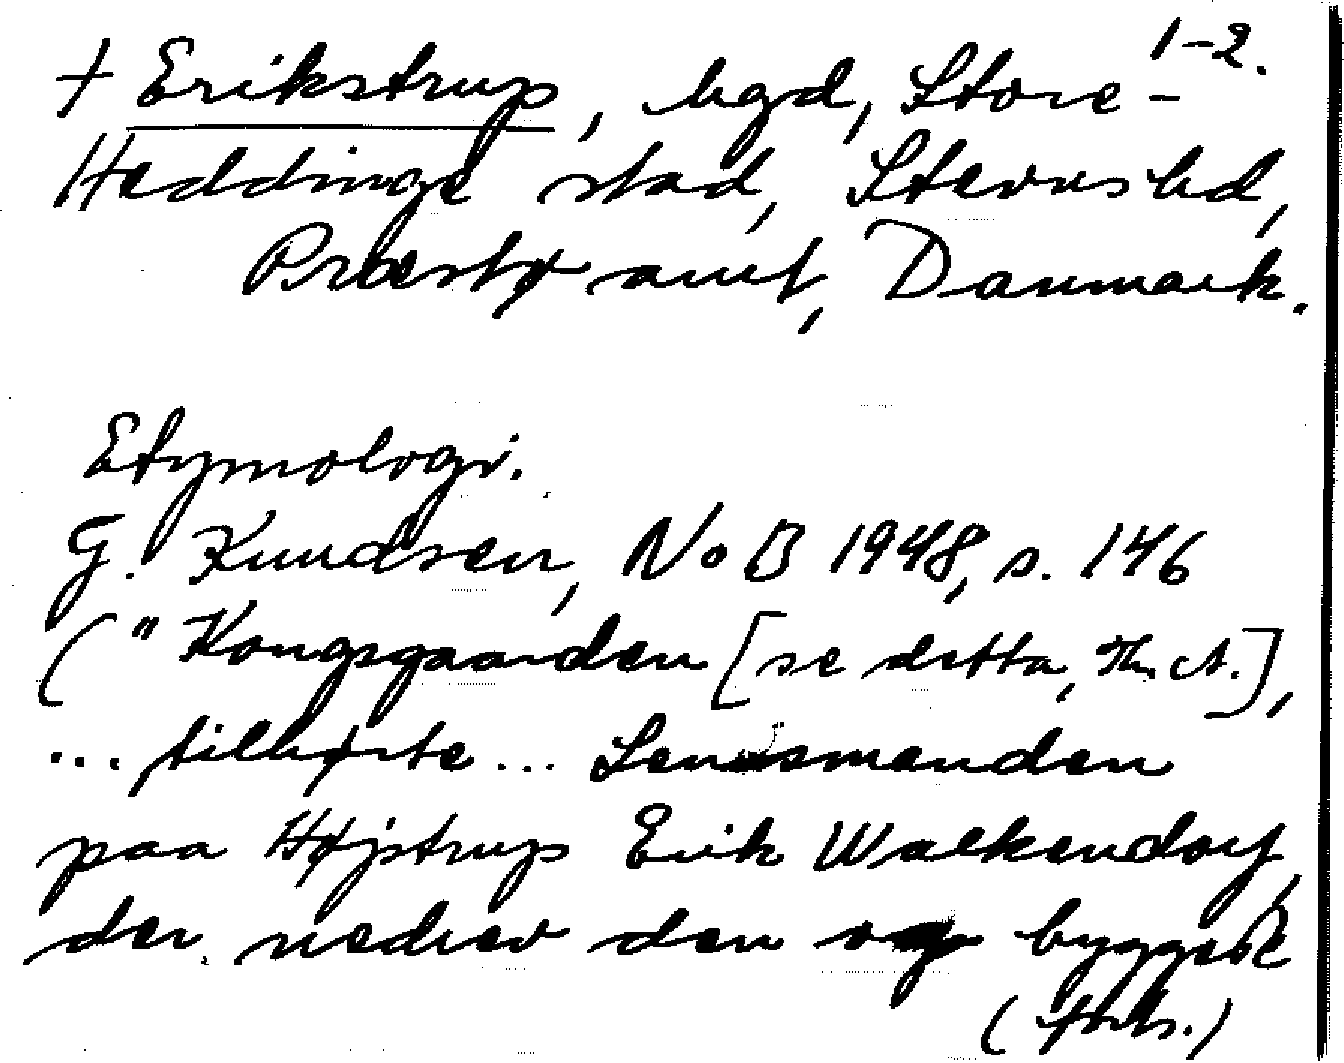 1-2.
† Erikstrup, bgd, Store-
Heddinge stad, Stevns hd,
Præstø amt, Danmark.
Etymologi.
G. Knudsen, NoB 1948, s. 146
("Kongsgaarden [se detta, Th. A.],
... tilhørte ... Lensmanden
paa Højstrup Erik Walkendorf,
der nedrev den og byggede
(forts.)